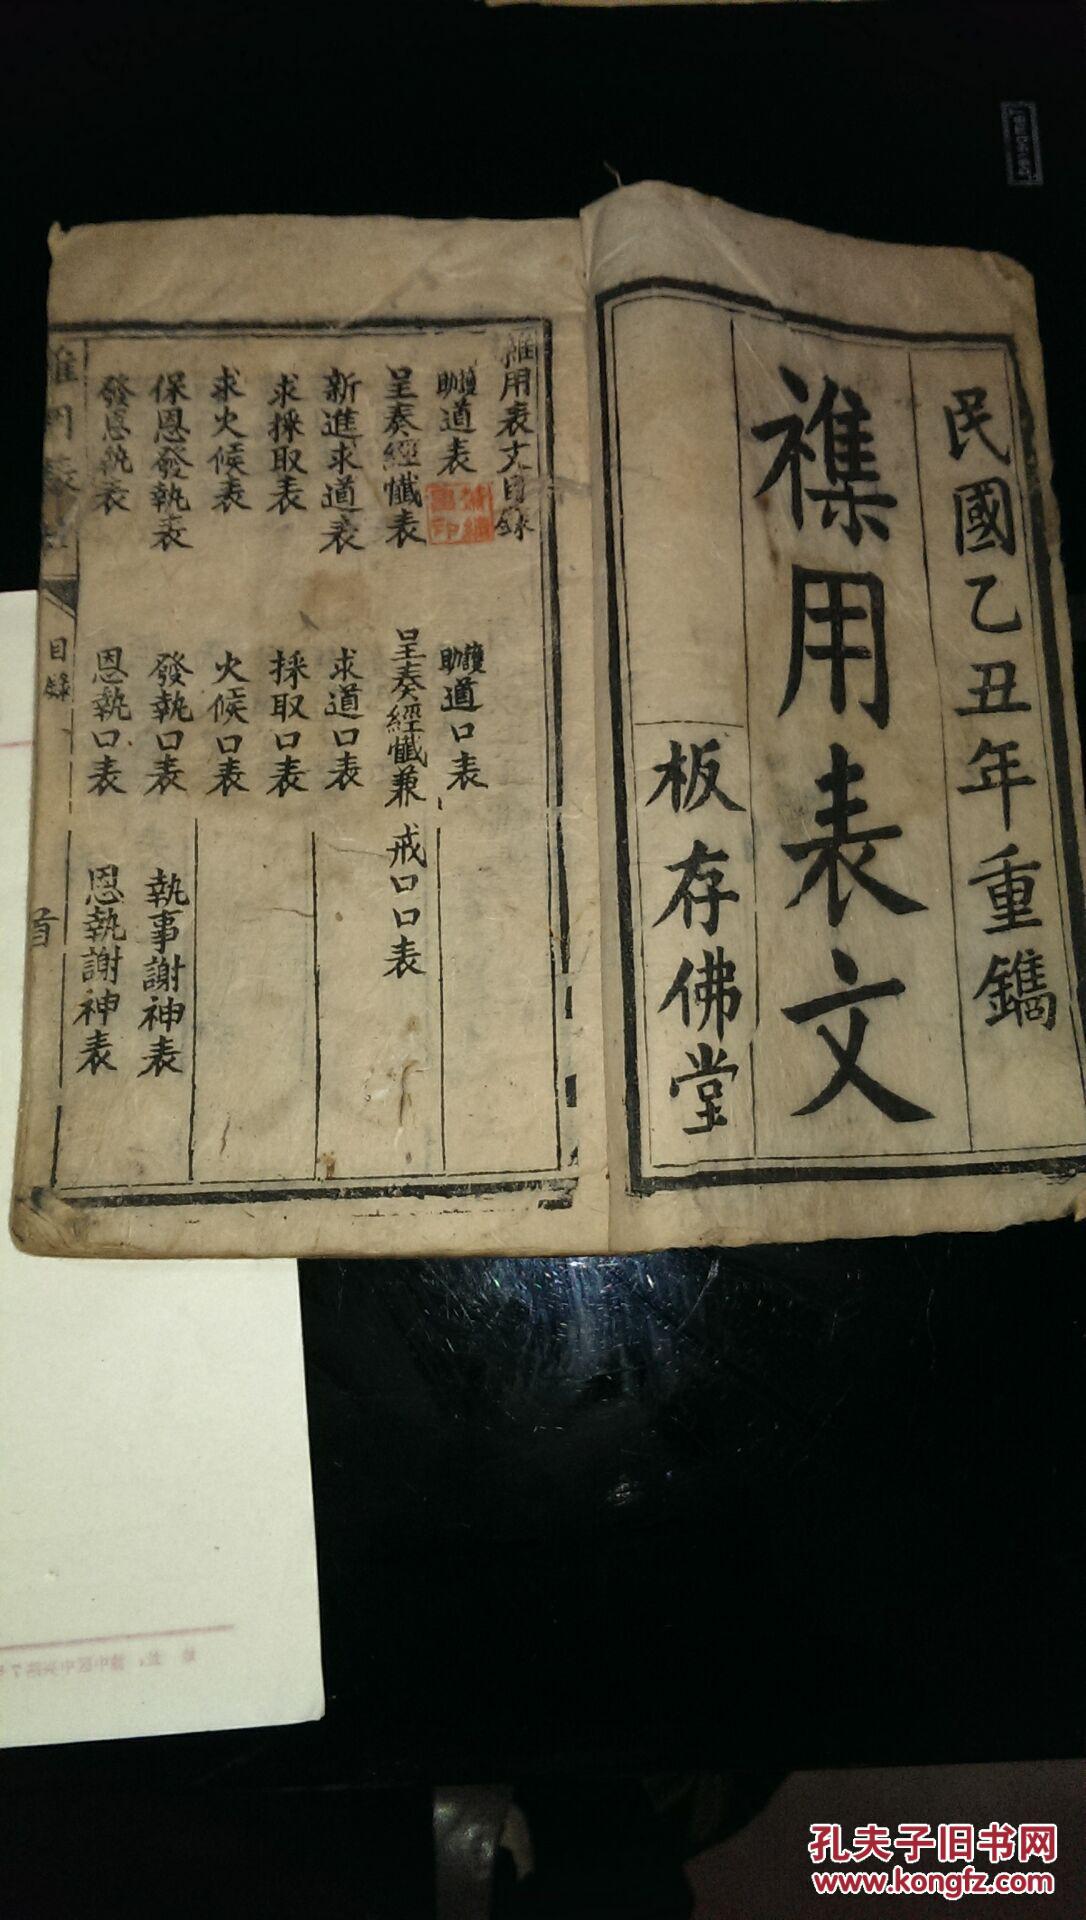 民國乙丑年重鐫
襍用表文
板存佛堂
雜用表文目錄
護助道表
護助道口表
呈奏經懺表
呈奏經懺兼戒口口表
新進求道表
求道口表
求採取表
採取口表
求火候表
火候口表
保恩發執表
發執口表
執事謝神表
發恩執表
恩執口表
恩執謝神表
目錄
首
孔夫子旧书网
www.kongfz.com